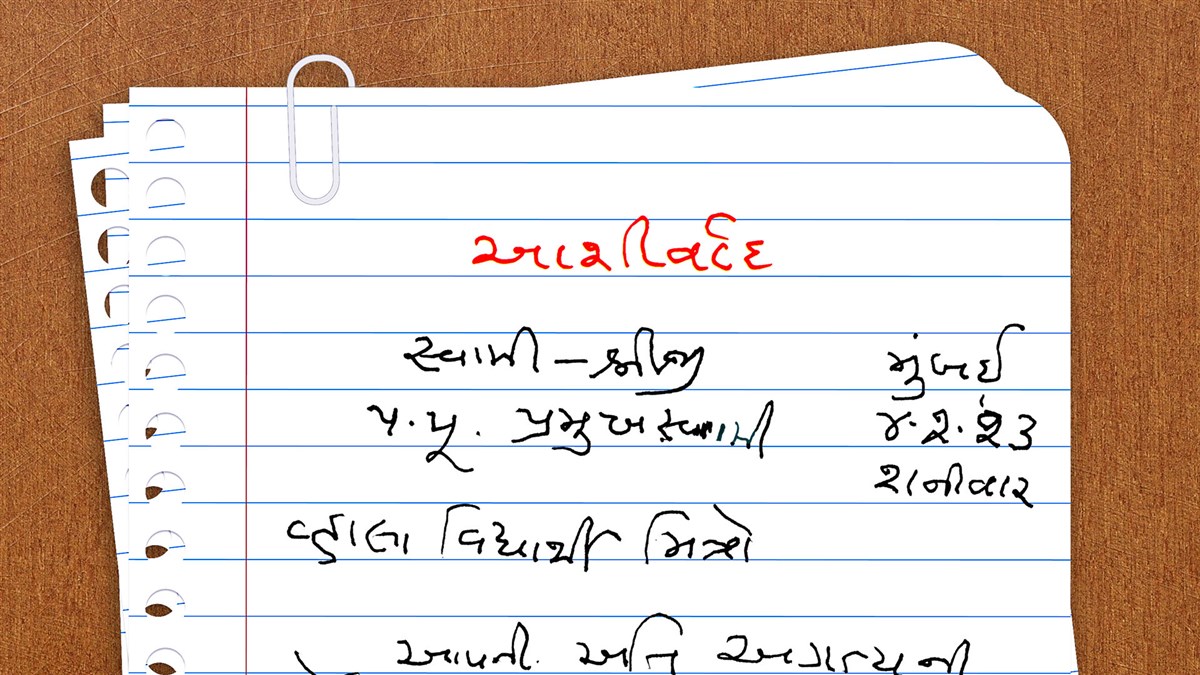 આશીર્વાદ
સ્વામી – શ્રીજી મુંબઈ
પ. પૂ. પ્રમુખસ્વામી ૪.૨.૨૩
શનીવાર
વ્હાલા વિદ્યાર્થી મિત્રો
આપની અતિ અગત્યની